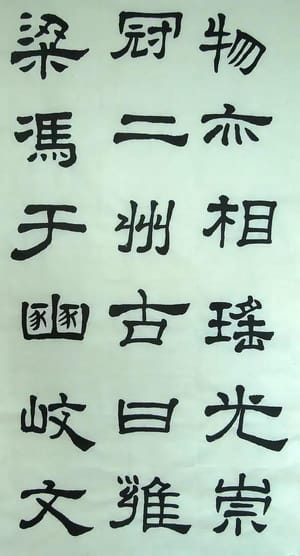 物亦相瑤光崇
冠二州古曰雍
梁馮于豳岐文